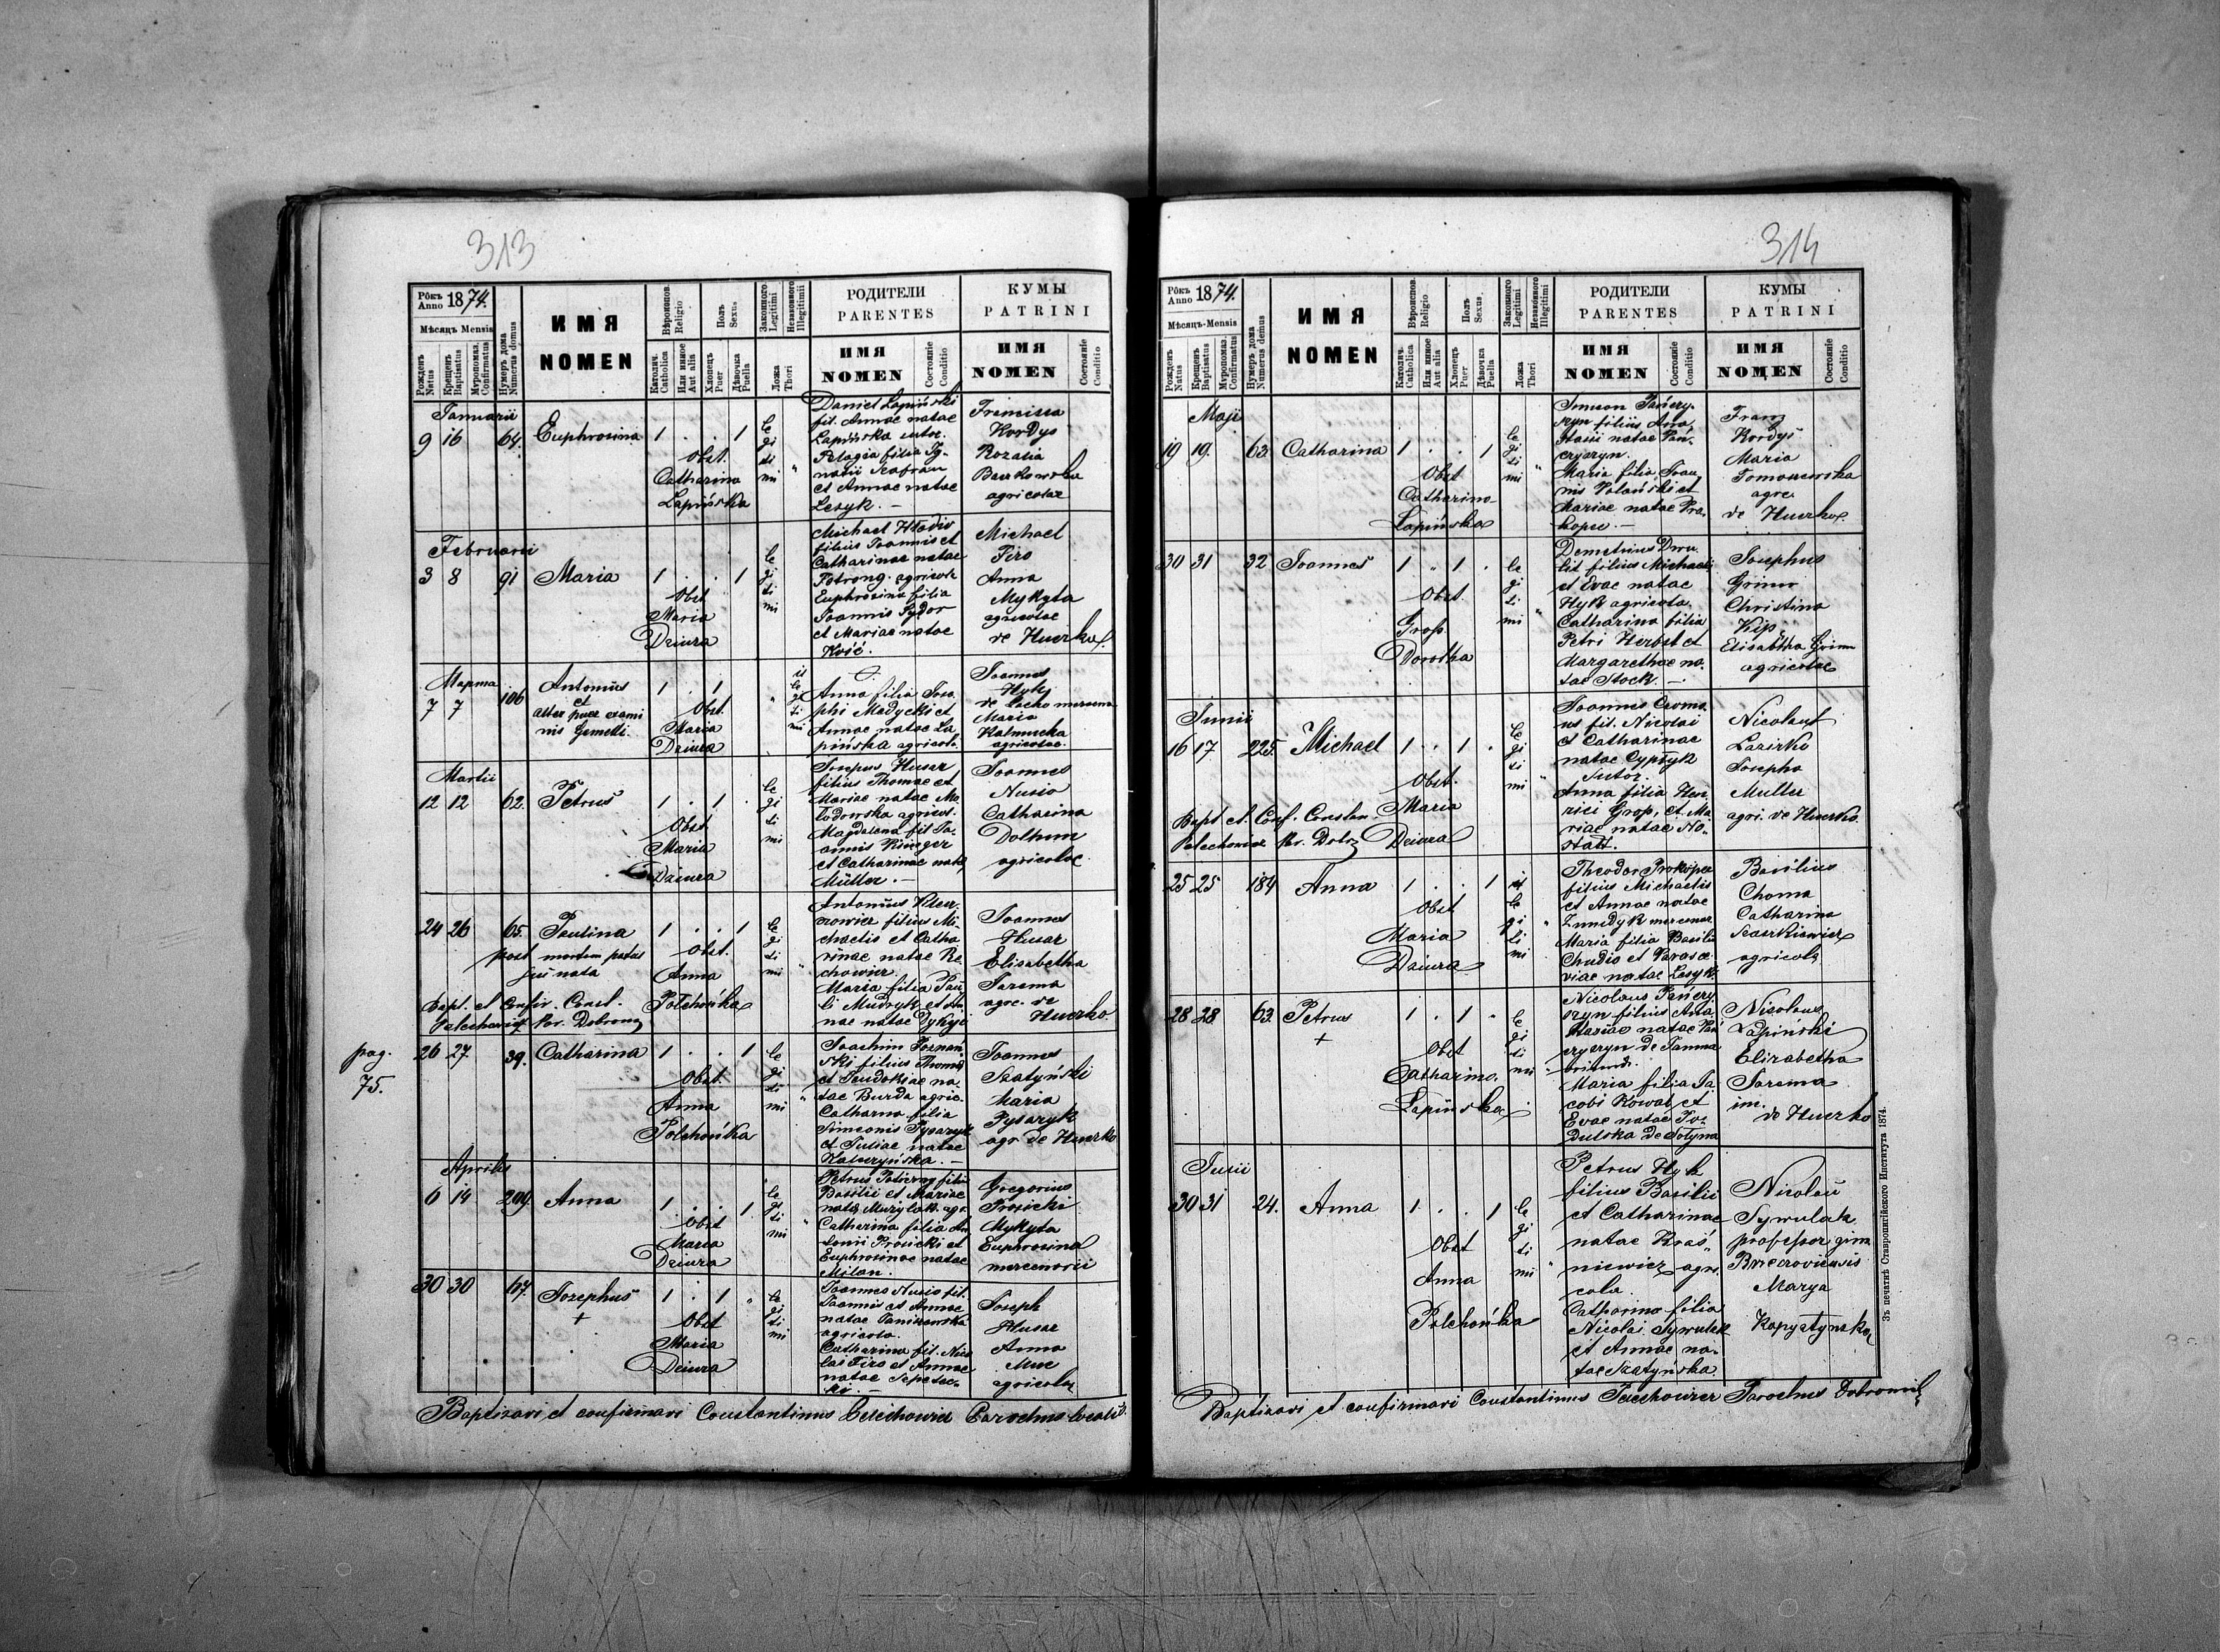 313
Рôкъ Anno 1874.
Мѣсяцъ Mensis
Рожденъ Natus
Крещенъ Baptisatus
Муропомаз. Confirmatus
Нумеръ дома Numerus domus
ИМЯ
NOMEN
Вѣроисповѣд. Religio
Католич. Catholica
Или иное Aut alia
Полъ Sexus
Хлопецъ Puer
Дѣвочка Puella
Законного Legitimi
Незаконного Illegitimi
Ложа Thori
РОДИТЕЛИ
PARENTES
ИМЯ
NOMEN
Состояніе Conditio
КУМЫ
PATRINI
ИМЯ
NOMEN
Состояніе Conditio
Januarii
9 16 64. Euphrosina 1 . . 1
Obst.
Catharina
Lapińska
le
gi
ti
mi
Daniel Lapiński
fil. Annae natae
Lapińska sutor.
Pelagia filia Ig-
natii Szafran
et Annae natae
Lesyk. —
Francisca
Kordys
Rozalia
agricolae
Februarii
3 8 91 Maria 1 . . 1
Obst
Maria
Dziura
le
gi
ti
mi
Michael Hladio
filius Joannis et
Catharinae natae
agricola
Euphrosina filia
Joannis Sydor
et Mariae natae
Michael
Firo
Anna
Mykyta
agricolae
de Huczko.
Марта
7 7 106 Antonius
et
alter puer exami
nis Gemelli.
1 . 1
Obst.
Maria
Dziura
il
le
gi
ti
mi
Anna filia Jose
phi Medycki et
Annae natae La
pińska agricola
Joannes
Hyk
Maria
agricolae.
Martii
12 12 62. Petrus 1 . 1 .
Obst.
Maria
Dziura
le
gi
ti
mi
Josepus Husar
filius Thomae et
Mariae natae Mo
lodowska agricol.
Magdalena fil Jo-
annis Kinger
et Catharinae natae
Müller. —
Joannes
Nusio
Catharina
Dolhun
agricolae
24 26 65. Paulina 1 . . 1
post mortem patris
jus nata
Obst.
Anna
Polchońka
le
gi
ti
mi
Bapt. et Confir. Const.
Pelechowicz Par. Dobrom
Antonius
filius Mi-
chaelis et Catha
rinae natae Re
chowicz.
Maria filia Pau
li Mudryk et An
nae natae Dykyj
Joannes
Husar
Elisabetha
Jarema
agr. de
Huczko
pag.
75.
26 27. 39. Catharina 1 . . 1
Obst.
Anna
Polchońka
le
gi
ti
mi
Joachim Poznań
ski filius Thomae
et Eudokiae na.
tae Burda agric.
Catharna filia
Simeonis Pysaryk
et Juliae natae
Joannes
Szatyński
Maria
Pysaryk
agr de Huczko
Aprilis
6 14 209. Anna 1 . . 1
Obst
Maria
Dziura
le
gi
ti
mi
filius
Basilii et Mariae
Catharina filia An
tonii Prosicki et
Euphrosinae natae
Milan.
Gregorius
Prosicki
Mykyta
Euphrosina
mercenarii
30 30 67. Josephus 1 . 1 "
+
Obst
Maria
Dziura
le
gi
ti
mi
Joannes Nusio fil.
Joannis et Annae
natae
agricola.
Catharina fil. Nico
lai Firo et Annae
natae
Joseph
Husar
Anna
Muc
agricolae
Baptizavi et confirmavi Constantinus Pelechowicz Parochus localis.
314
Рôкъ Anno 1874.
Мѣсяцъ-Mensis
Рожденъ Natus
Крещенъ Baptisatus
Муропомаз. Confirmatus
Нумеръ дома Numerus domus
ИМЯ
NOMEN
Вѣроисповѣд. Religio
Католич. Catholica
Или иное Aut alia
Полъ Sexus.
Хлопецъ Puer
Дѣвочка Puella
Законного Legitimi
Незаконного Illegitimi
Ложа Thori
РОДИТЕЛИ
PARENTES
ИМЯ
NOMEN
Состояніе Conditio
КУМЫ
PATRINI
ИМЯ
NOMEN
Состояніе Conditio
Maji
19 19. 63. Catharina 1 . . 1
Obst
Catharina
Lapińska
le
gi
ti
mi
Simeon Pańczy-
szyn filius Ana
stasii natae Pan-
Maria filia Joan
nis Polański et
Mariae natae Pro-
kopec. —
Franz
Kordyś
Maria
agr.
de Huczko.
30 31 32 Joannes 1 " 1 .
Obst.
Grosz
Dorotha
le
gi
ti
mi
Demetrius Dru-
lit filius Michaelis
et Evae natae
Hyk agricola.
Catharina filia
Petri Herbst et
Margarethae na-
tae Stock. —
Josephus
Grimm
Christina
Kip
Elisabtha Grimm
agricolae
Junii
16 17 225. Michael 1 . 1 .
Obst.
Maria
Dziura
le
gi
ti
mi
Bapt et Conf. Constan
Pelechowicz Par. Dobr
Joannes
us fil. Nicolai
et Catharinae
natae Cypryk
Sutor.
Anna filia Hen
rici Grosz, et Ma
riae natae
Nicolaus
Lazirko
Josepha
Muller
agr. de Huczko.
25 25 184 Anna 1 . . 1
Obst
Maria
Dziura
il
le
gi
ti
mi
Theodor Prokopec
filius Michaelis
et Annae natae
Maria filia Basilii
Chudio et Parasce
viae natae Lesyk.
Basilius
Choma
Catharina
agricolae
28 28 63. Petrus 1 . 1 .
+
Obst
Catharina.
Lapińska
le
gi
ti
mi
Nicolaus Pańczy
szyn filius Ana
stasiae natae Pań
Maria filia Ja
cobi Kowal et
Evae natae
Nicolaus
Lapiński
Elizabetha
Jarema
im.
de Huczko
Julii
30 31 24. Anna 1 . . 1
Obst
Anna
Polchońka
le
gi
ti
mi
Petrus Hyk
filius Basilii
et Catharinae
natae Kraś-
niewicz agri.
cola.
Catharina filia
Nicolai Sywulak
et Annae na-
tae Szatyńska.
Nicolau
Sywulak
professor gim
Marya
Kopystynska
Baptizavi et confirmavi Constantinus Pelechowicz Parochus Dobromil
Зъ печатнѣ Ставропигійского Института 1874.